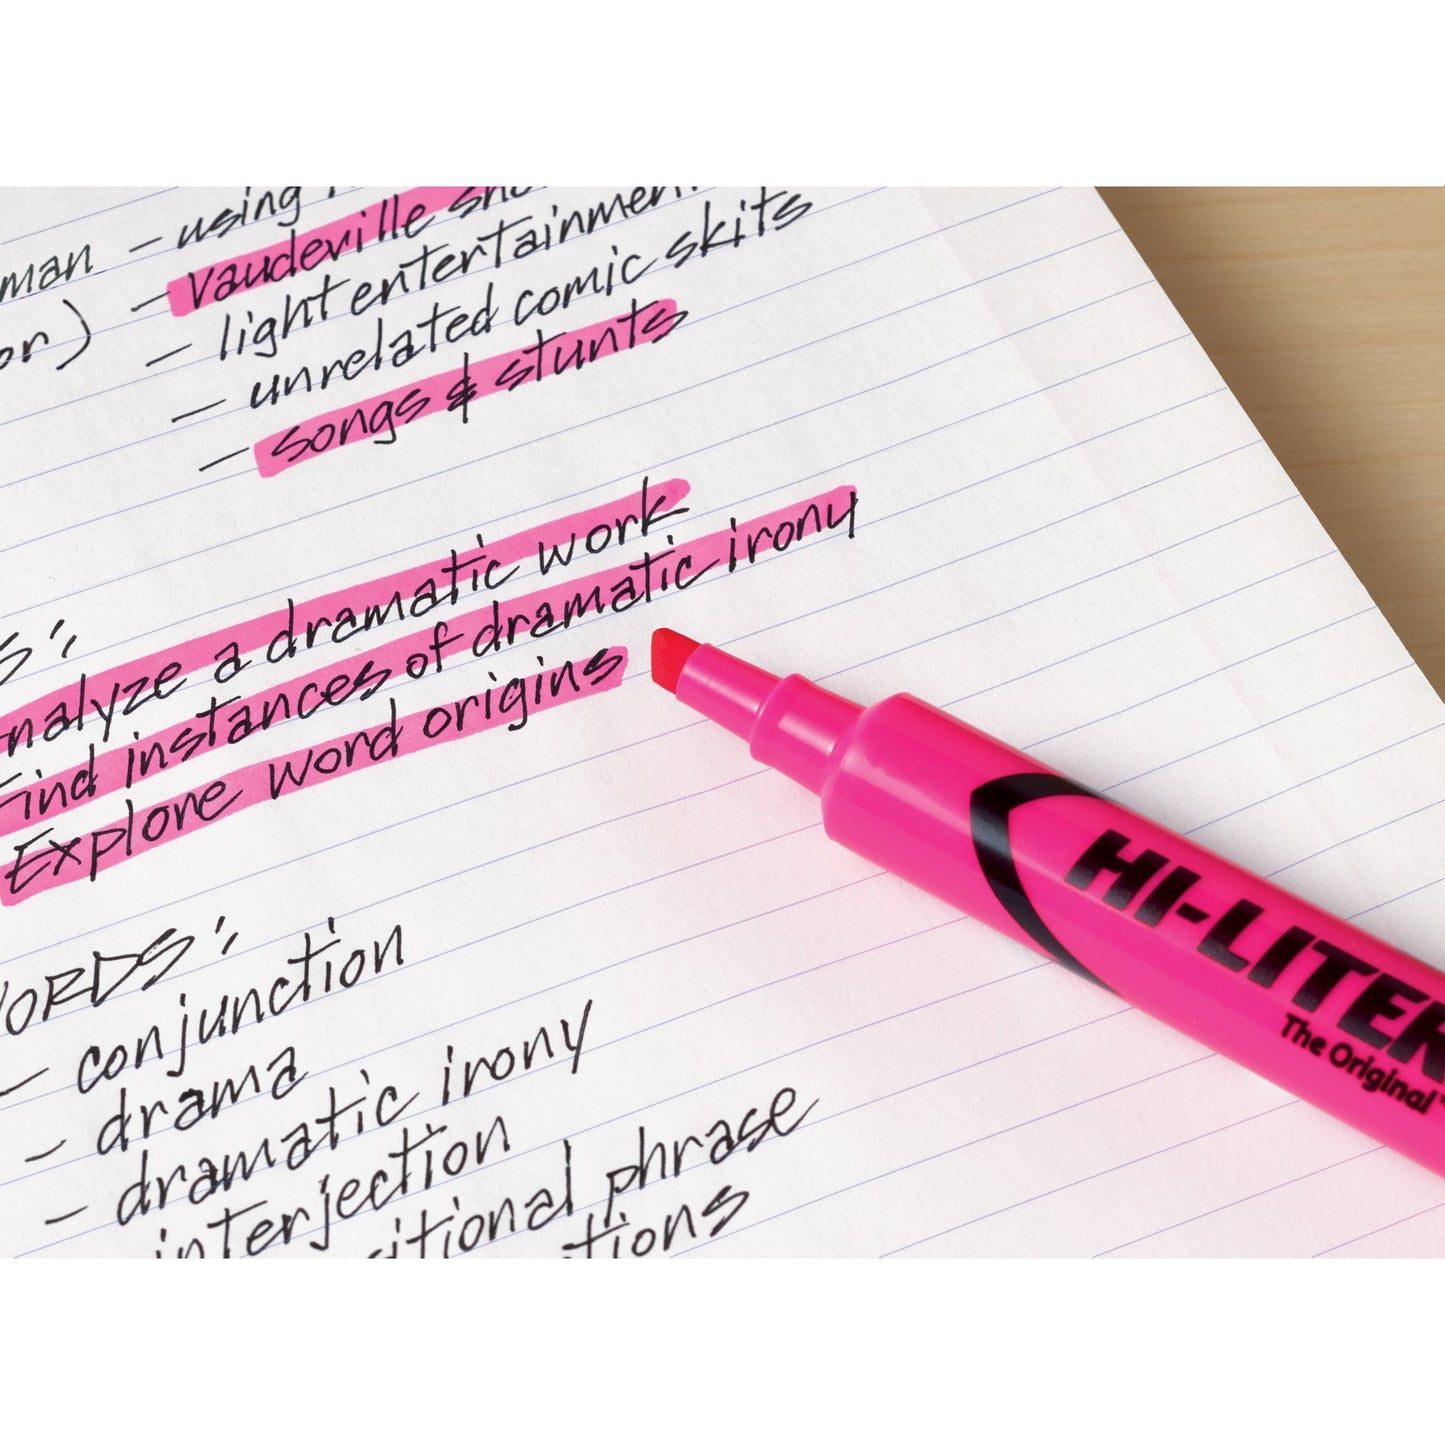 - using
man - vaudeville
or) - light entertainment
- unrelated comic skits
- songs & stunts
analyze a dramatic work
Find instances of dramatic irony
Explore word origins
WORDS:
- conjunction
- drama
- dramatic irony
interjection
phrase
HI-LITER
The Original